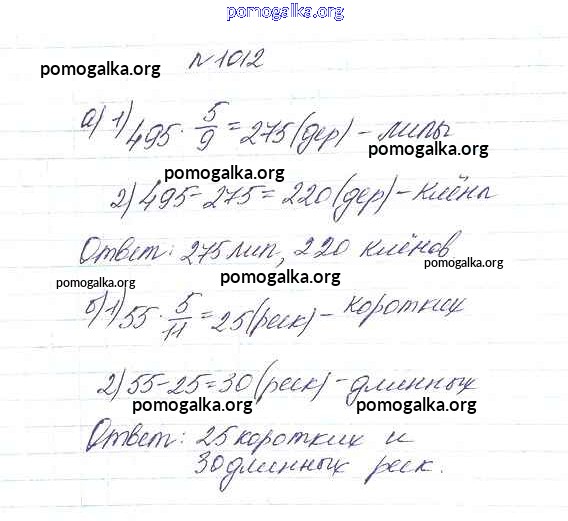 pomogalka.org
№1012
pomogalka.org
а) 1) 495 · 5/9 = 275 (дер) - липы
pomogalka.org
pomogalka.org
2) 495 - 275 = 220 (дер) - клёны
Ответ: 275 лип, 220 клёнов
pomogalka.org
pomogalka.org
pomogalka.org
б) 1) 55 · 5/11 = 25 (реек) - коротких
2) 55 - 25 = 30 (реек) - длинных
pomogalka.org
pomogalka.org
Ответ: 25 коротких и
30 длинных реек.